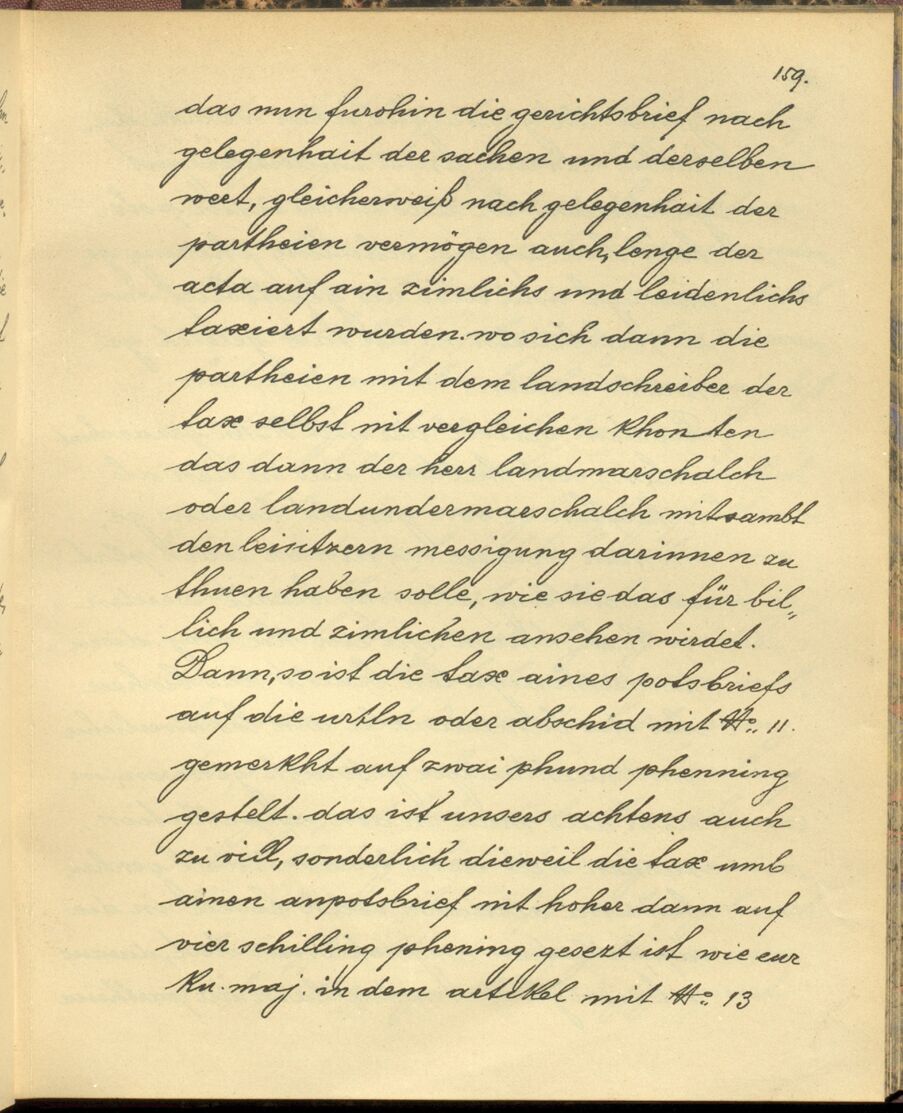 159.
das nun furohin die gerichtsbrief nach
gelegenhait der sachen und derselben
wert, gleicherweiß nach gelegenhait der
partheien vermögen auch, lenge der
acta auf ain zimlichs und leidenlichs
taxiert wurden. wo sich dann die
partheien mit dem landschreiber der
tax selbst nit vergleichen khonten
das dann der herr landmarschalch
oder landundermarschalch mitsambt
den beisitzern messigung darinnen zu
thuen haben solle, wie sie das für bil„
lich und zimlichen ansehen wirdet.
Dann, so ist die tax aines potsbriefs
auf die urtln oder abschid mit No: 11.
gemerkht auf zwai phund phenning
gestelt. das ist unsers achtens auch
zu vill, sonderlich dieweil die tax umb
ainen anpotsbrief nit hoher dann auf
vier schilling phening gesezt ist wie eur
ku. maj. in dem artikel mit No: 13